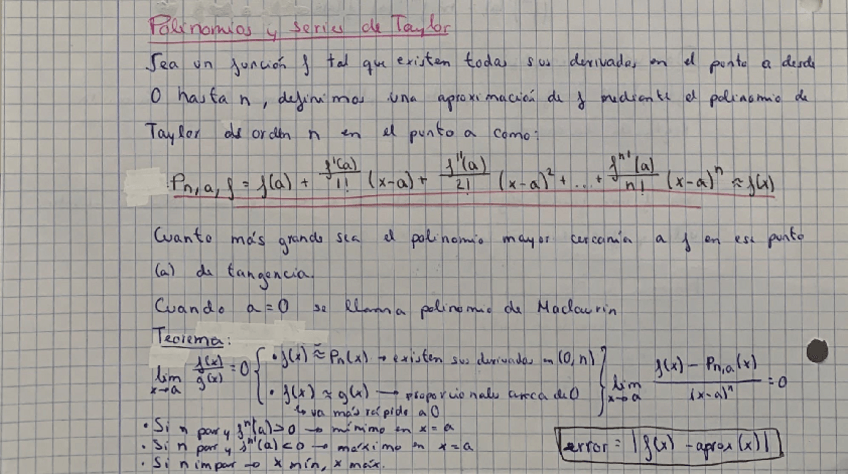 Polinomios y series de Taylor
Sea un función f tal que existen todas sus derivadas en el punto a desde
0 hasta n, definimos una aproximación de f mediante el polinomio de
Taylor de orden n en el punto a como:
Pn,a,f = f(a) + f'(a)/1! (x-a) + f''(a)/2! (x-a)² + ... + fⁿ'(a)/n! (x-a)ⁿ ≈ f(x)
Cuanto más grande sea el polinomio mayor cercanía a f en ese punto
(a) de tangencia.
Cuando a=0 se llama polinomio de Maclaurin
Teorema:
lim x→a f(x)/g(x) = 0 { • f(x) ≈ Pn(x) → existen sus derivadas en (0,n)
• f(x) ≈ g(x) → proporcionales cerca de 0 } lim x→a f(x) - Pn,a(x) / (x-a)ⁿ = 0
↳ va más rápido a 0
• Si n par y fⁿ'(a)>0 → mínimo en x=a
• Si n par y fⁿ'(a)<0 → máximo en x=a
• Si n impar → x mín, x máx.
error = |f(x) - aprox(x)|